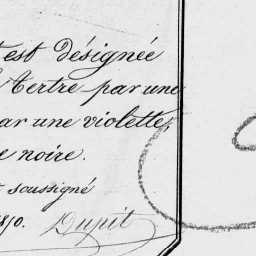 est désignée
Tertre par une
par une violette,
e noire.
soussigné
1810. Dupit